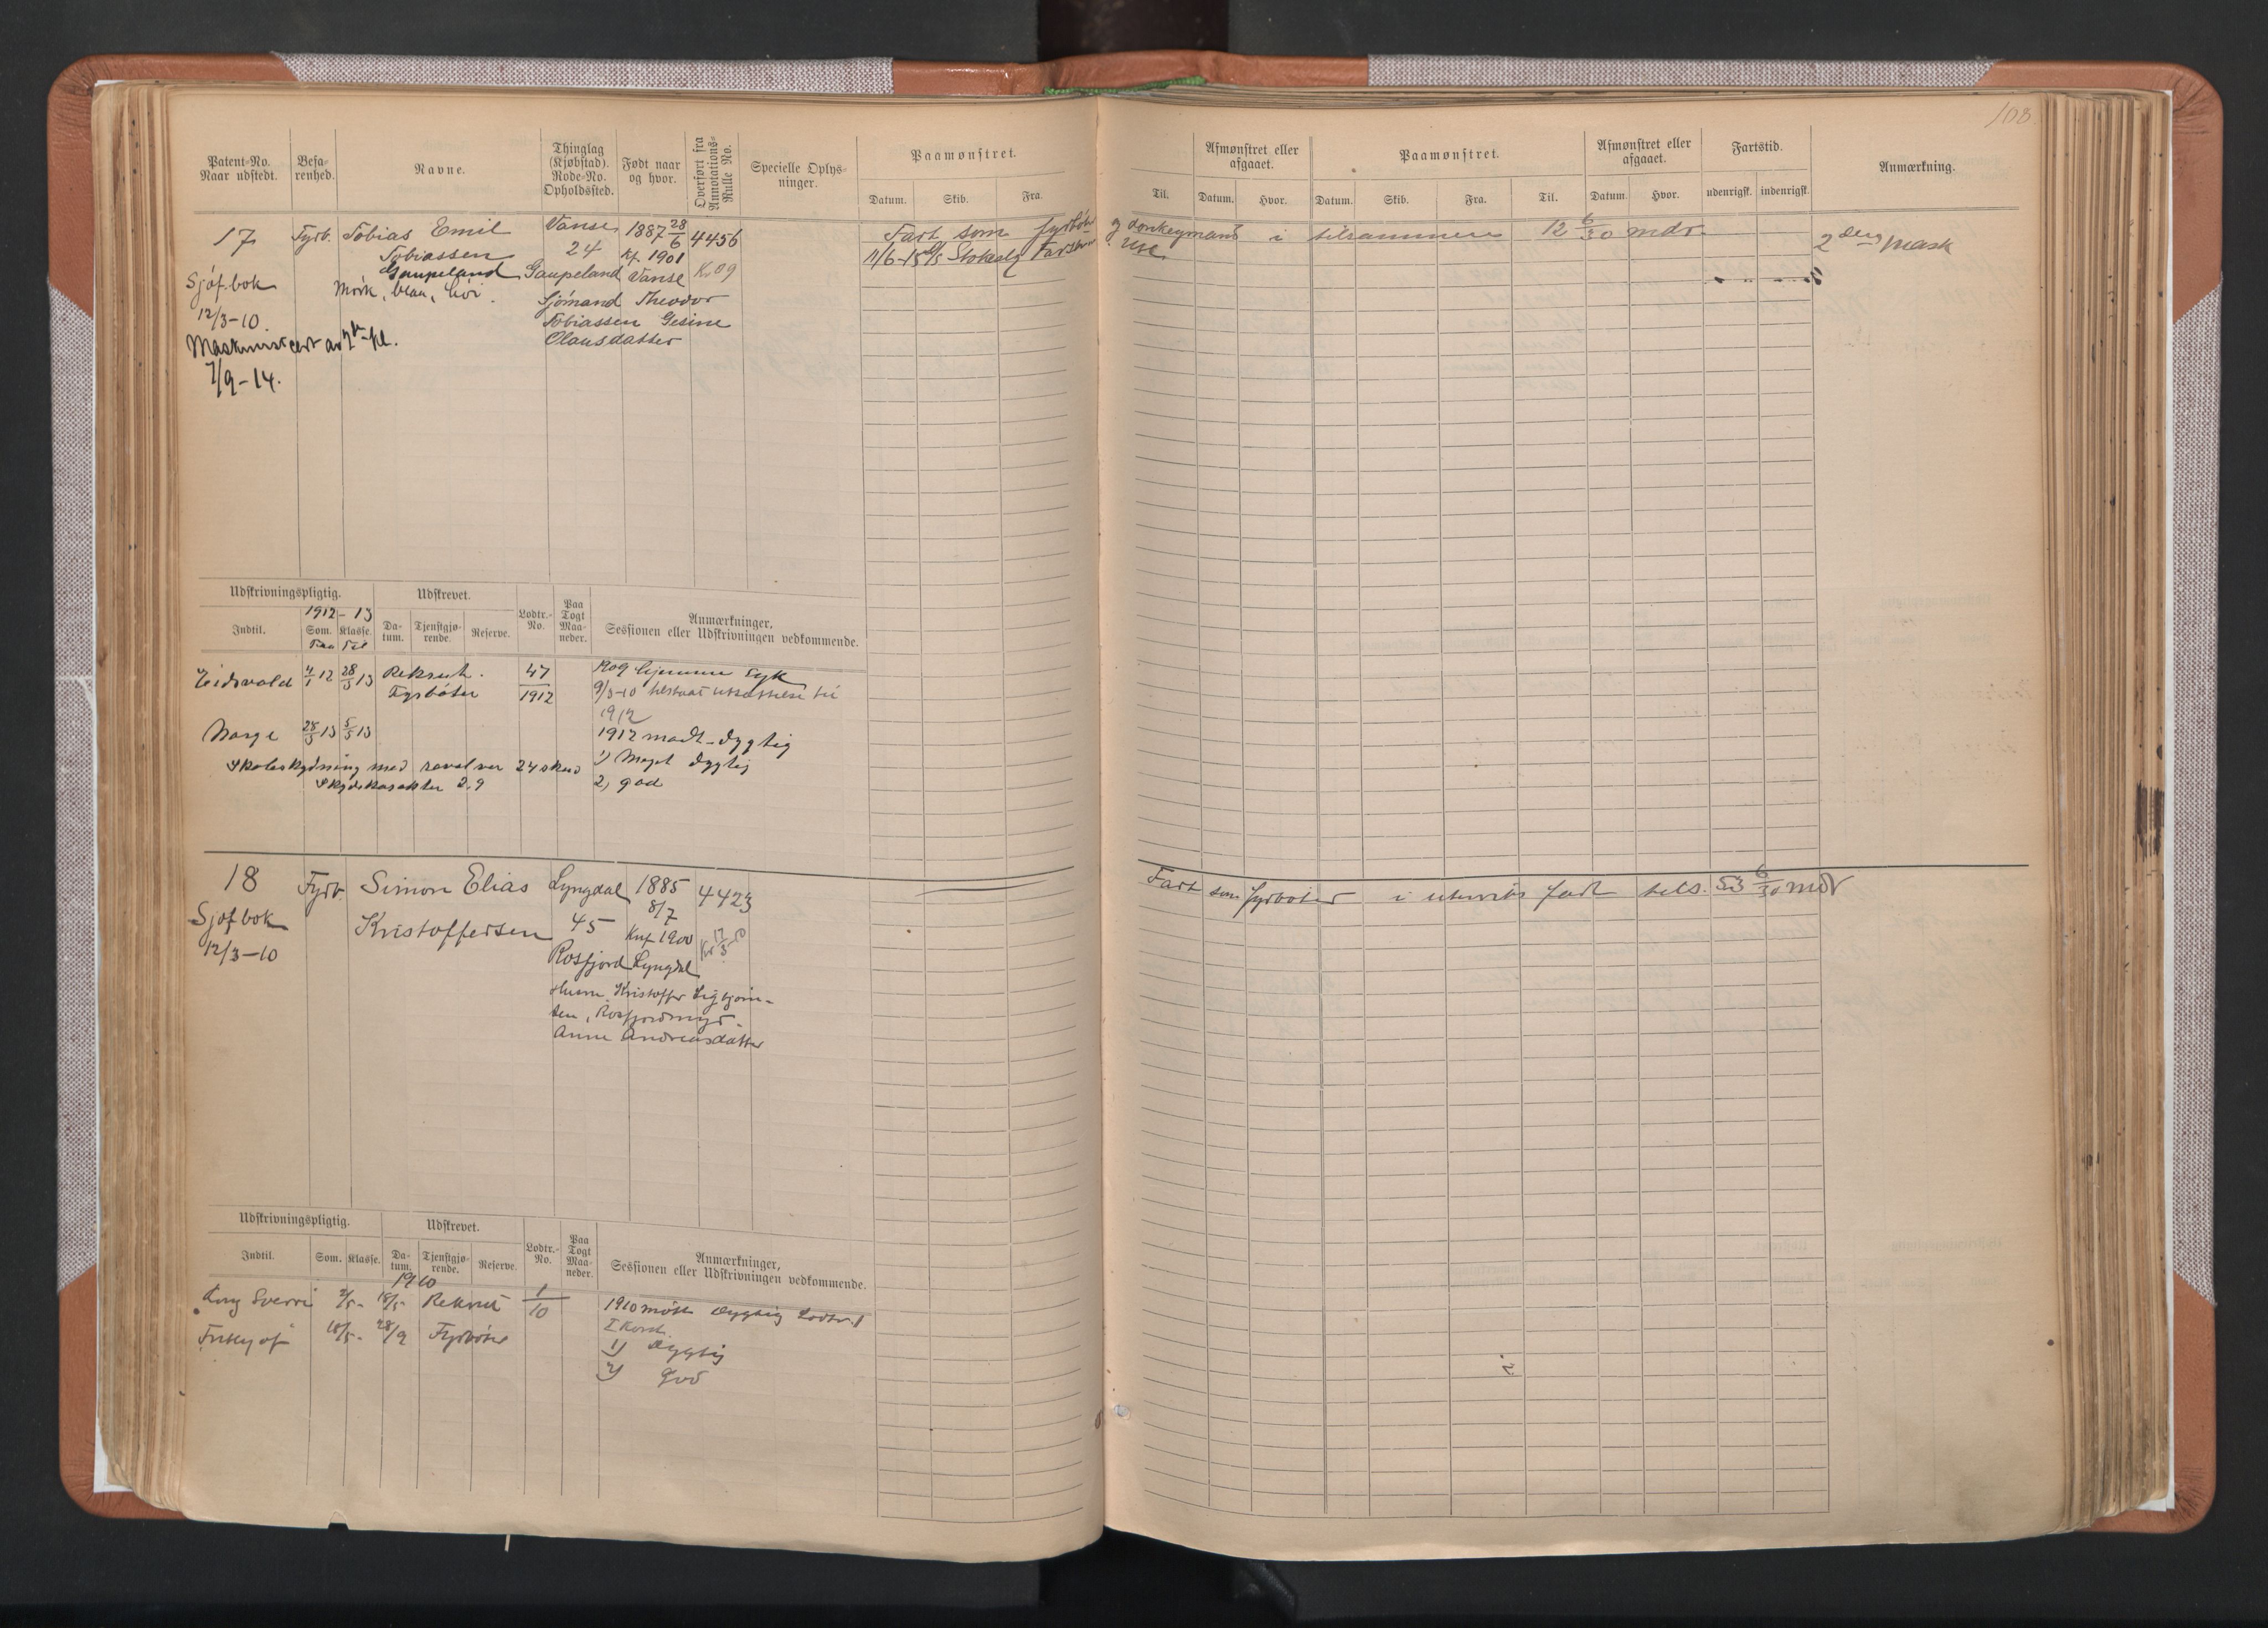 108
Patent-No. Naar udstedt.
Befarenhed.
Navne.
Thinglag (Kjøbstad). Rode-No. Opholdssted.
Født naar og hvor.
Overført fra Annotations-Rulle No.
Specielle Oplysninger.
Paamønstret.
Datum. Skib. Fra. Til.
Afmønstret eller afgaaet.
Datum. Hvor.
Paamønstret.
Datum. Skib. Fra. Til.
Afmønstret eller afgaaet.
Datum. Hvor.
Fartstid.
udenrigsk. indenrigsk.
Anmærkning.
17 Fyrb. Tobias Emil Vanse 1887 28/6 4456
Tobiassen 24 Kf. 1901
Gaupeland Gaupeland Vanse K. 09
Sjøf.bok
12/3-10.
Mørk, blaa, høi.
Sjømand Theodor
Tobiassen Gesine
Olausdatter
Maskinistcert av 2den kl.
7/9-14.
Fart som fyrbøter og donkeymand i tilsammen 12 6/30 mdr.
2den Mask
Udskrivningspligtig. Udskrevet. Lodtr.-No. Paa Togt Maaneder.
Anmærkninger, Sessionen eller Udskrivningen vedkommende.
1912-13
Indtil. Som. Klasse. Datum. Tjenstgjørende. Reserve.
Fra Til
Eidsvold 4/1 12 28/3 13 Rekrut. 47
Fyrbøter 1912
1909 hjemme syk
9/3-10 tilstaat utsættelse til
1912
1912 mødt - dygtig
Norge 28/3 13 5/5 13
1) Meget dygtig
2) god
Skoleskydning med revolver 24 skud
Skydekarakter 2.9
18 Fyrb. Simon Elias Lyngdal 1885 4423
8/7
Kristoffersen 45 Knf. 1900
Sjøf.bok
12/3-10
Rosfjord Lyngdal
Husm. Kristoffer
Anne Andreasdatter
Fart som fyrbøter i utenriks fart tils. 53 6/30 mdr
Udskrivningspligtig. Udskrevet. Lodtr.-No. Paa Togt Maaneder.
Anmærkninger, Sessionen eller Udskrivningen vedkommende.
Indtil. Som. Klasse. Datum. Tjenstgjørende. Reserve.
1910
Kong Sverre 2/5- 18/5- Rekrut 1/10
1910 møtt dygtig Lodtr. 1
Fritjof 18/5- 28/9 Fyrbøter
1) Dygtig
2) God